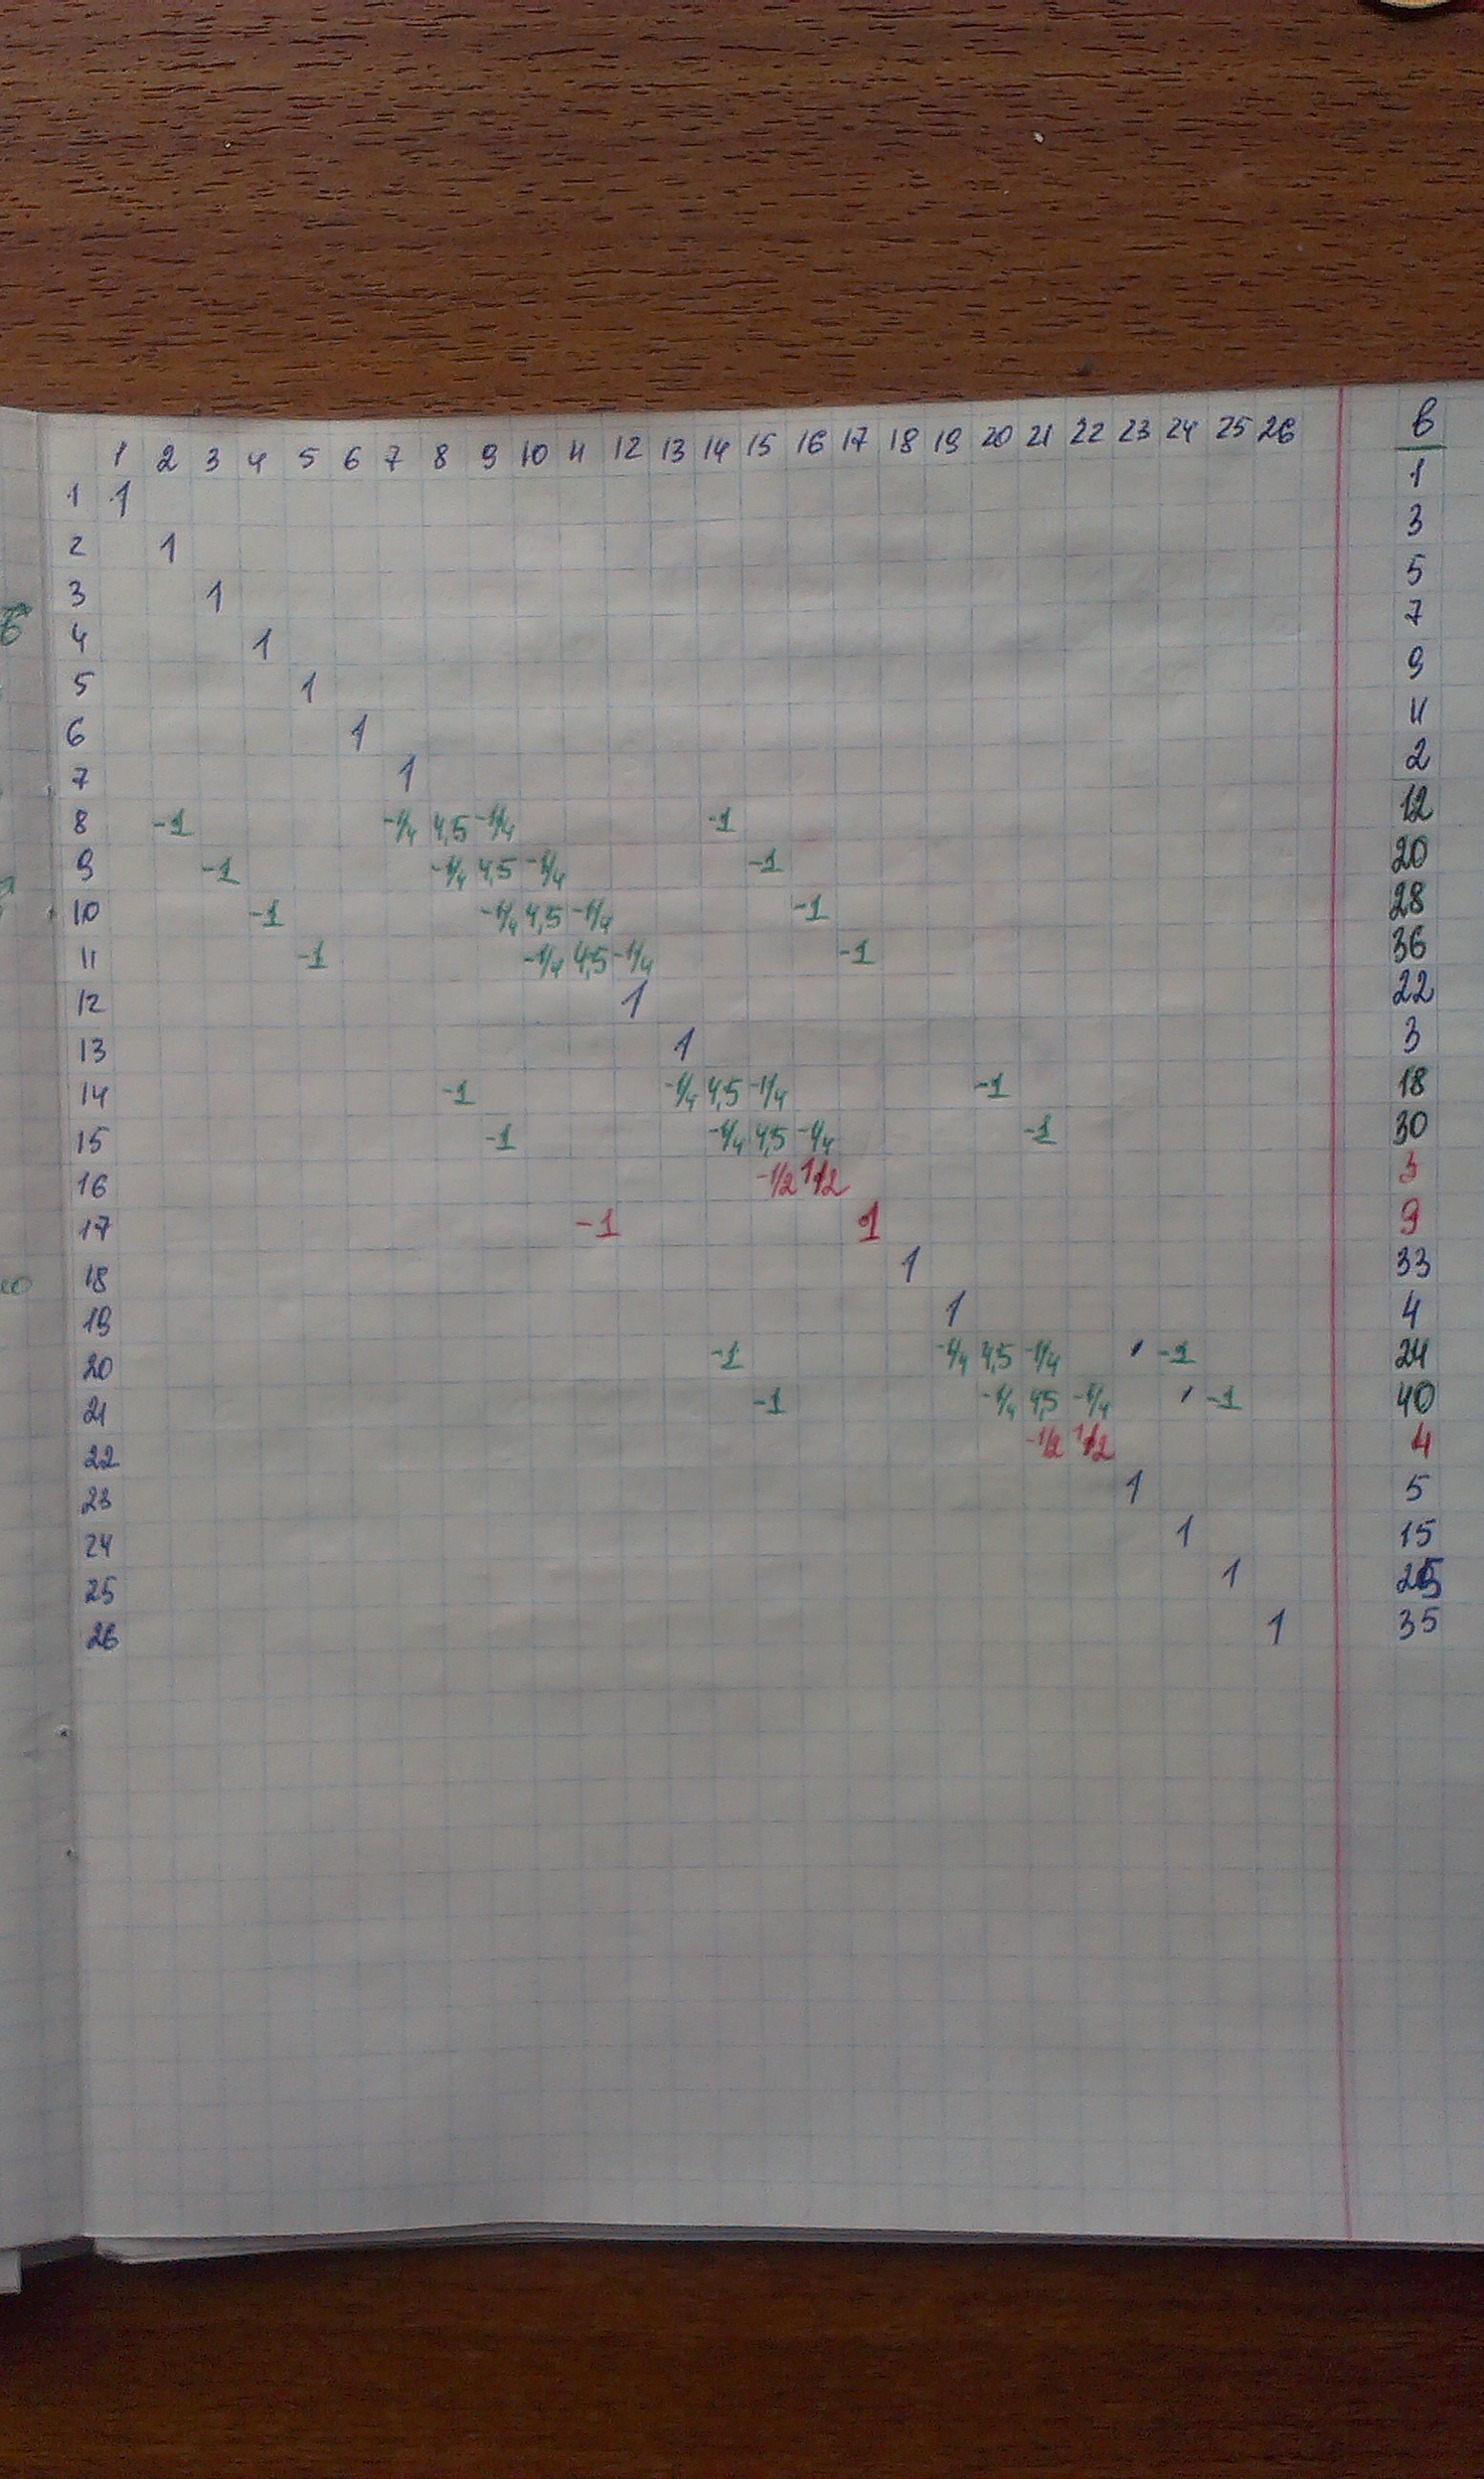 1 2 3 4 5 6 7 8 9 10 11 12 13 14 15 16 17 18 19 20 21 22 23 24 25 26 b
1 1 1
2 1 3
3 1 5
4 1 7
5 1 9
6 1 11
7 1 2
8 -1 -1/4 4,5 -1/4 -1 12
9 -1 -1/4 4,5 -1/4 -1 20
10 -1 -1/4 4,5 -1/4 -1 28
11 -1 -1/4 4,5 -1/4 -1 36
12 1 22
13 1 3
14 -1 -1/4 4,5 -1/4 -1 18
15 -1 -1/4 4,5 -1/4 -1 30
16 -1/2 1/2 3
17 -1 1 9
18 1 33
19 1 4
20 -1 -1/4 4,5 -1/4 -1 24
21 -1 -1/4 4,5 -1/4 -1 40
22 -1/2 1/2 4
23 1 5
24 1 15
25 1 25
26 1 35